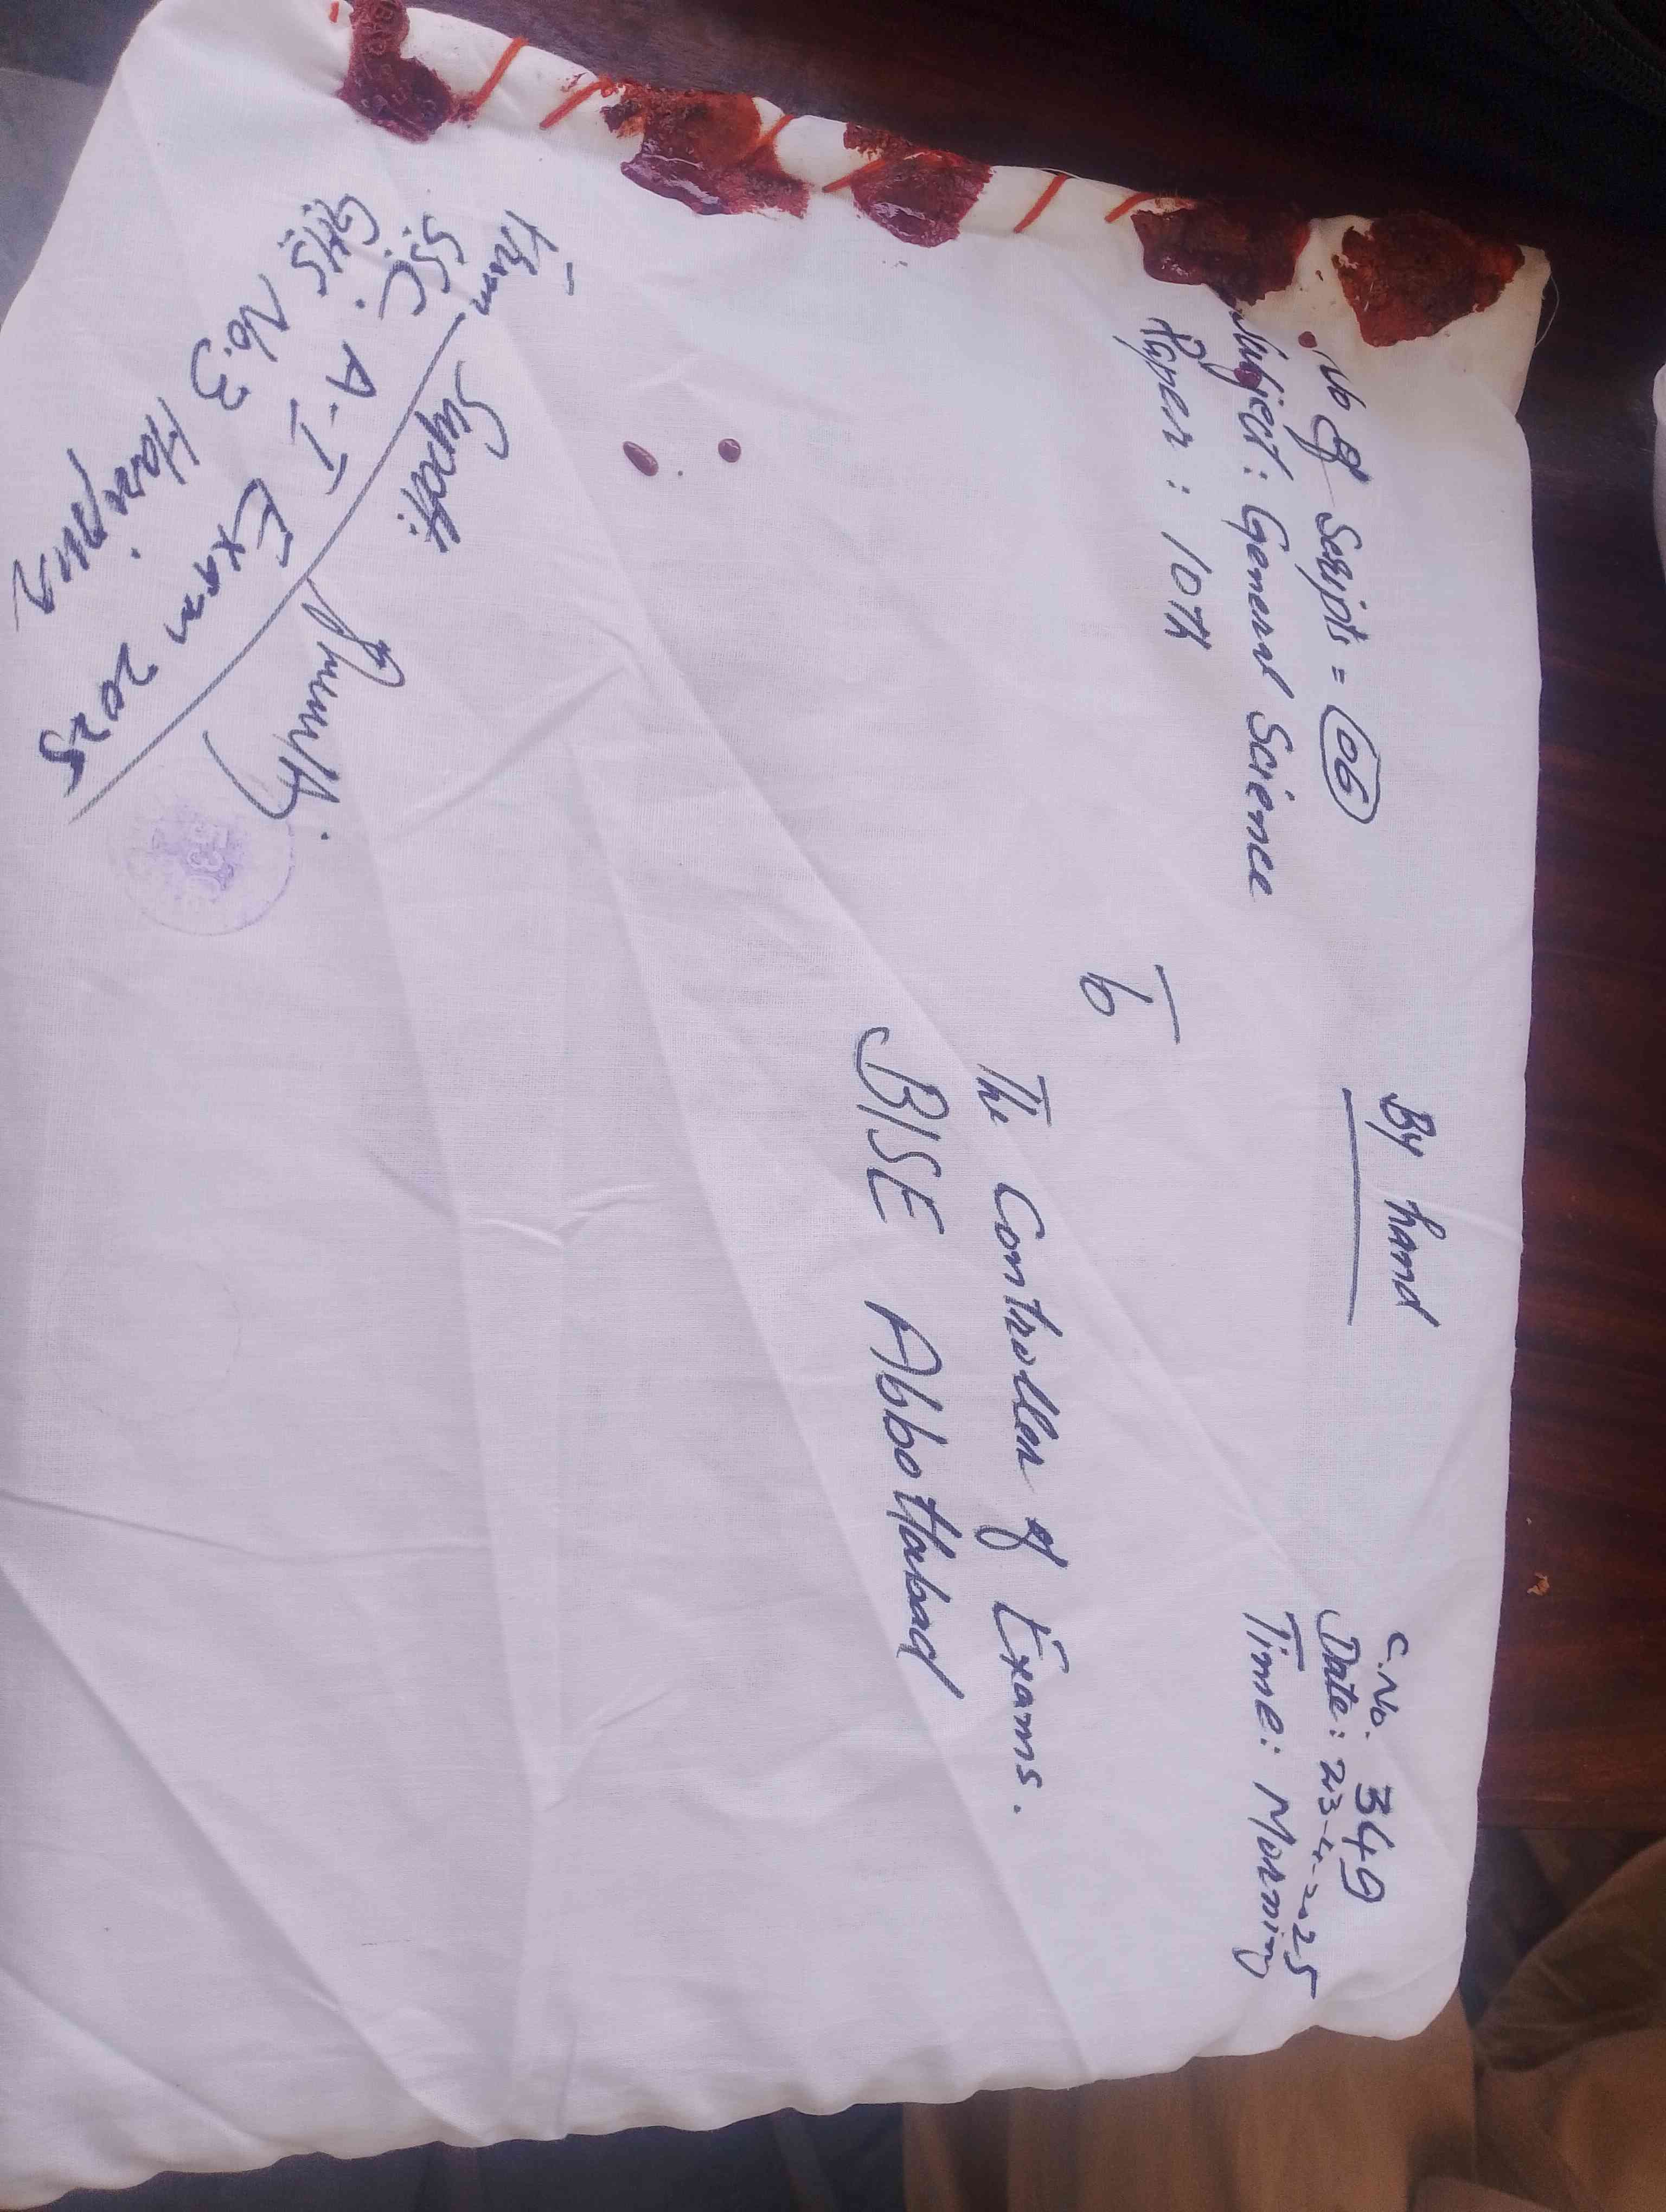 No of Scripts = 06
Subject: General Science
Paper: 10th
By hand
C.No. 349
Date: 23-4-2025
Time: Morning
To
The Controller of Exams.
BISE Abbottabad
From
Supdtt:
SSC. A-I Exam 2025
GHS No. 3
Haripur